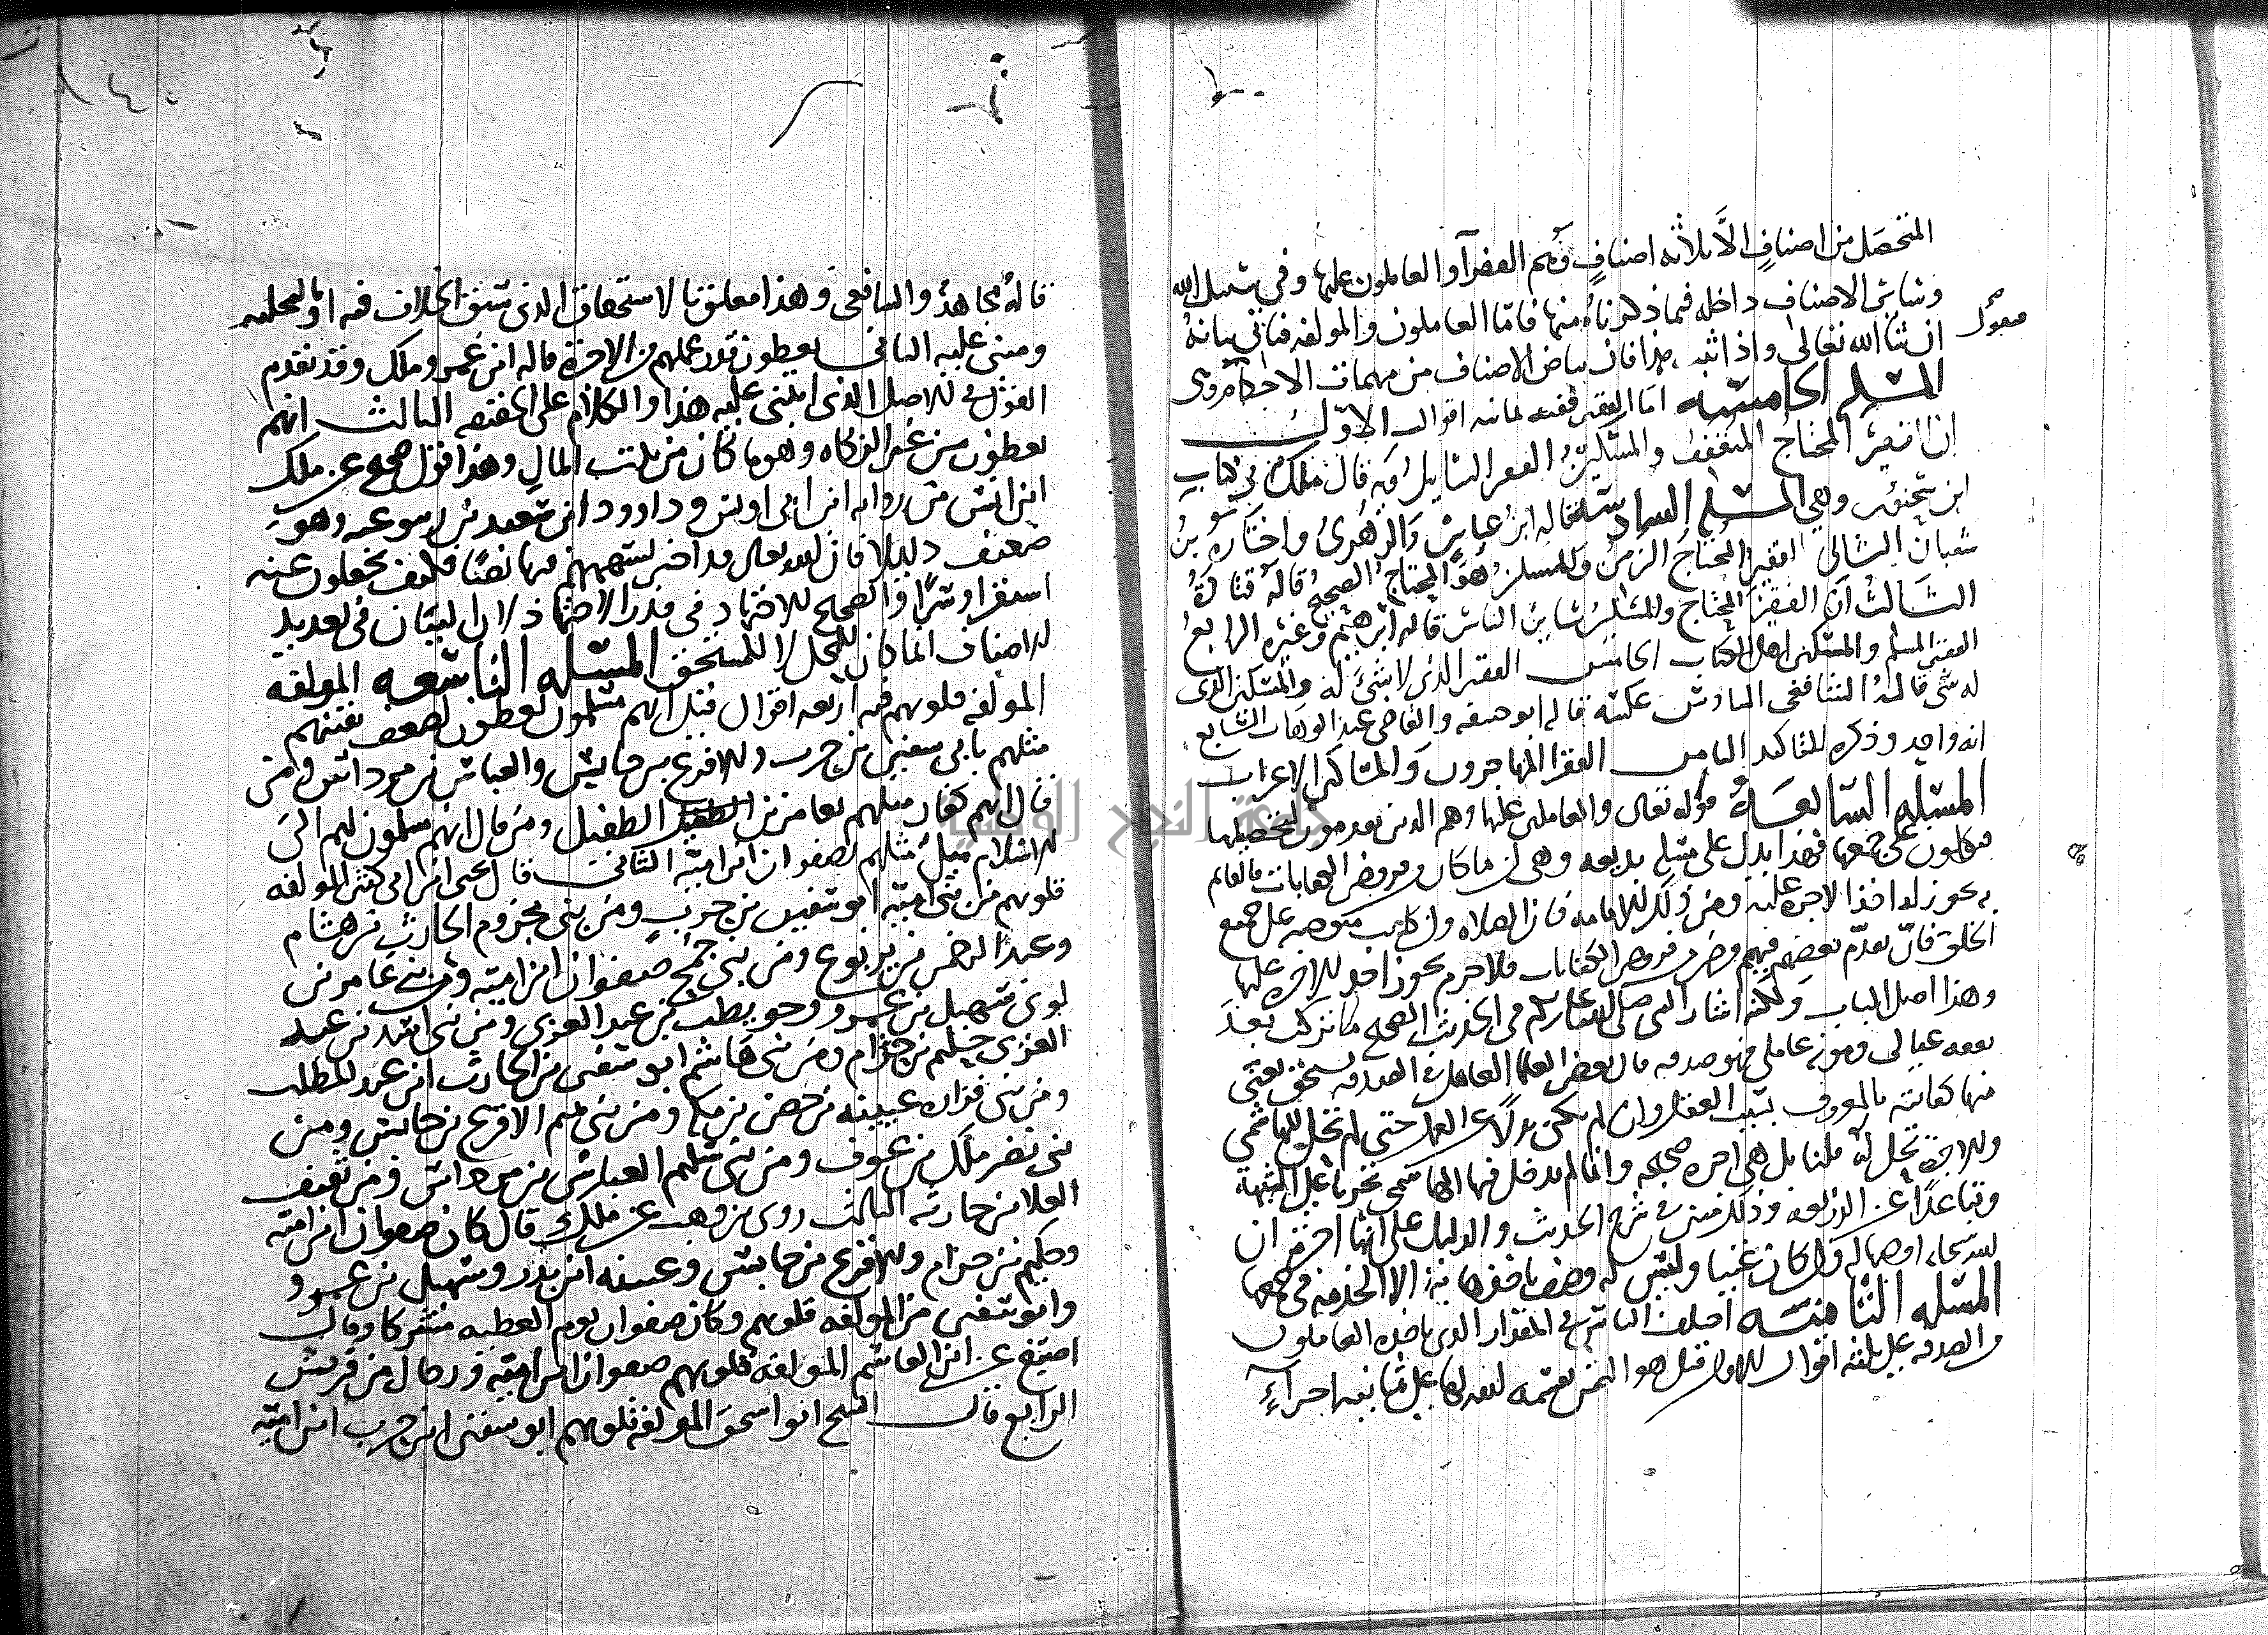 المتحصل من اصناف الا ثلاثة اصناف وهم الفقرا والعاملون عليها وفي سبيل الله
وسائر الاصناف داخله فيما ذكرناه منها فاما العاملون والمولفه فياتي بيانه
ان شا الله تعالى واذا ثبت هذا فان بيان الاصناف من مهمات الاحكام
المسله الخامسه اما الفقير ففيه ثمانيه اقوال الاول
ان الفقير المحتاج المتعفف والمسكين الفقير السايل وبه قال ملك في كتاب
ابن سحنون وهي المسله السادسه قاله ابن عباس والزهري واختاره بن
شعبان الثاني الفقير المحتاج الزمن والمسكين هو المحتاج الصحيح قاله قتادة
الثالث ان الفقير المحتاج والمسكين ساير الناس قاله ابرهيم وغيره الرابع
الفقير المسلم والمسكين اهل الكتاب الخامس الفقير الذي لا شي له والمسكين الذي
له شي قاله الشافعي السادس عكسه قاله ابو حنيفه والقاضي عبد الوهاب السابع
انه واحد وذكره للتاكيد الثامن الفقرا المهاجرون والمساكين الاعراب
المسله السابعة قوله تعالى والعاملين عليها وهم الذين يقدمون لتحصيلها
ويوكلون على جمعها فهذا يدل على مسله بديعه وهي ان ما كان من فروض الكفايات فالقائم
به يجوز له اخذ الاجره عليه ومن ذلك الامامه فان الصلاه وان كانت متوجهه على جميع
الخلق فان تقدم بعضهم بهم من فروض الكفايات فلا جرم يجوز اخذ الاجره عليها
وهذا اصل الباب ولكنه اشار النبي صلى الله عليه وسلم في الحديث الصحيح ما تركت بعد
نفقه عيالي وموونه عاملي فهو صدقه قال بعض العلما العامل في الصدقه يستحق يعني
منها كفايته بالمعروف بسبب العمل وان لم يكن بدلا عن العمل حتى لم تحل للهاشمي
والاجره تحل له قلنا بل هي اجره صحيحه وانما لم يدخل فيها الهاشمي تحريا على التهمة
وتباعدا عن الذريعه وذلك مبين في شرح الحديث والدليل على انها اجره ان
الله سبحانه اوصى له وان كان غنيا وليس له وصف ياخذ به الا الخدمه في جمعها
المسله الثامنه اختلف الناس في المقدار الذي ياخذه العاملون
من الصدقه على ثلثه اقوال الاول قيل هو الثمن بقسمه الله لها على ثمانيه اجزآء
قاله مجاهد والشافعي وهذا معلق بالاستحقاق الذي سبق الخلاف فيه او بالمحليه
ومبني عليه الثاني يعطون قدر عملهم من الاجرة قاله ابن عمر وملك وقد تقدم
القول في الاصل الذي انبنى عليه هذا والكلام على الحقيقه الثالث انهم
يعطون من غير الزكاه وهو ما كان من بيت المال وهذا قول صحيح عن ملك
ابن انس من روايه ابن ابي اويس وداوود ابن سعيد بن زنبوعه وهو
ضعيف دليلا فان الله تعالى قد اخبر بسهمهم فيها نصا فكيف يخلون عنه
استقرا وسبرا والصحيح الاجتهاد في قدر الاجتهاد لان البيان في تعديد
الاصناف انما كان للمحل لا للمستحق المسله التاسعه المولفه
المولفه قلوبهم فيه اربعه اقوال قيل انهم مسلمون يعطون لضعف يقينهم
مثلهم بابي سفين بن حرب والاقرع بن حابس والعباس بن مرداس ومن
قال انهم كفار مثلهم بعامر بن الطفيل الطفيل ومن قال انهم مسلمون لهم الى
الاسلام ميل مثلهم بصفوان ابن اميه الثاني قال يحيى ابن ابي كثير المولفه
قلوبهم من بني اميه ابو سفين بن حرب ومن بني مخزوم الحارث بن هشام
وعبد الرحمن بن يربوع ومن بني جمح صفوان ابن اميه ومن بني عامر بن
لوي سهيل بن عمرو وحويطب بن عبد العزى ومن بني اسد بن عبد
العزى حكيم بن حزام ومن بني هاشم ابو سفين بن الحارث ابن عبد المطلب
ومن بني فزاره عيينه بن حصن بن بدر ومن بني تميم الاقرع بن حابس ومن
بني نصر ملك بن عوف ومن بني سليم العباس بن مرداس ومن ثقيف
العلا بن حارثه الثالث روى بن وهب عن ملك قال كان صفوان ابن اميه
وحكيم بن حزام والاقرع بن حابس وعيينه ابن بدر وسهيل بن عمرو
وابو سفين من المولفه قلوبهم وكان صفوان يوم العطيه مشركا وقال
اصبغ عن ابن القاسم المولفه قلوبهم صفوان ابن اميه ورجال من قريش
الرابع قال الشيخ ابو اسحق المولفه قلوبهم ابو سفين ابن حرب ابن اميه
جامعة النجاح الوطنية